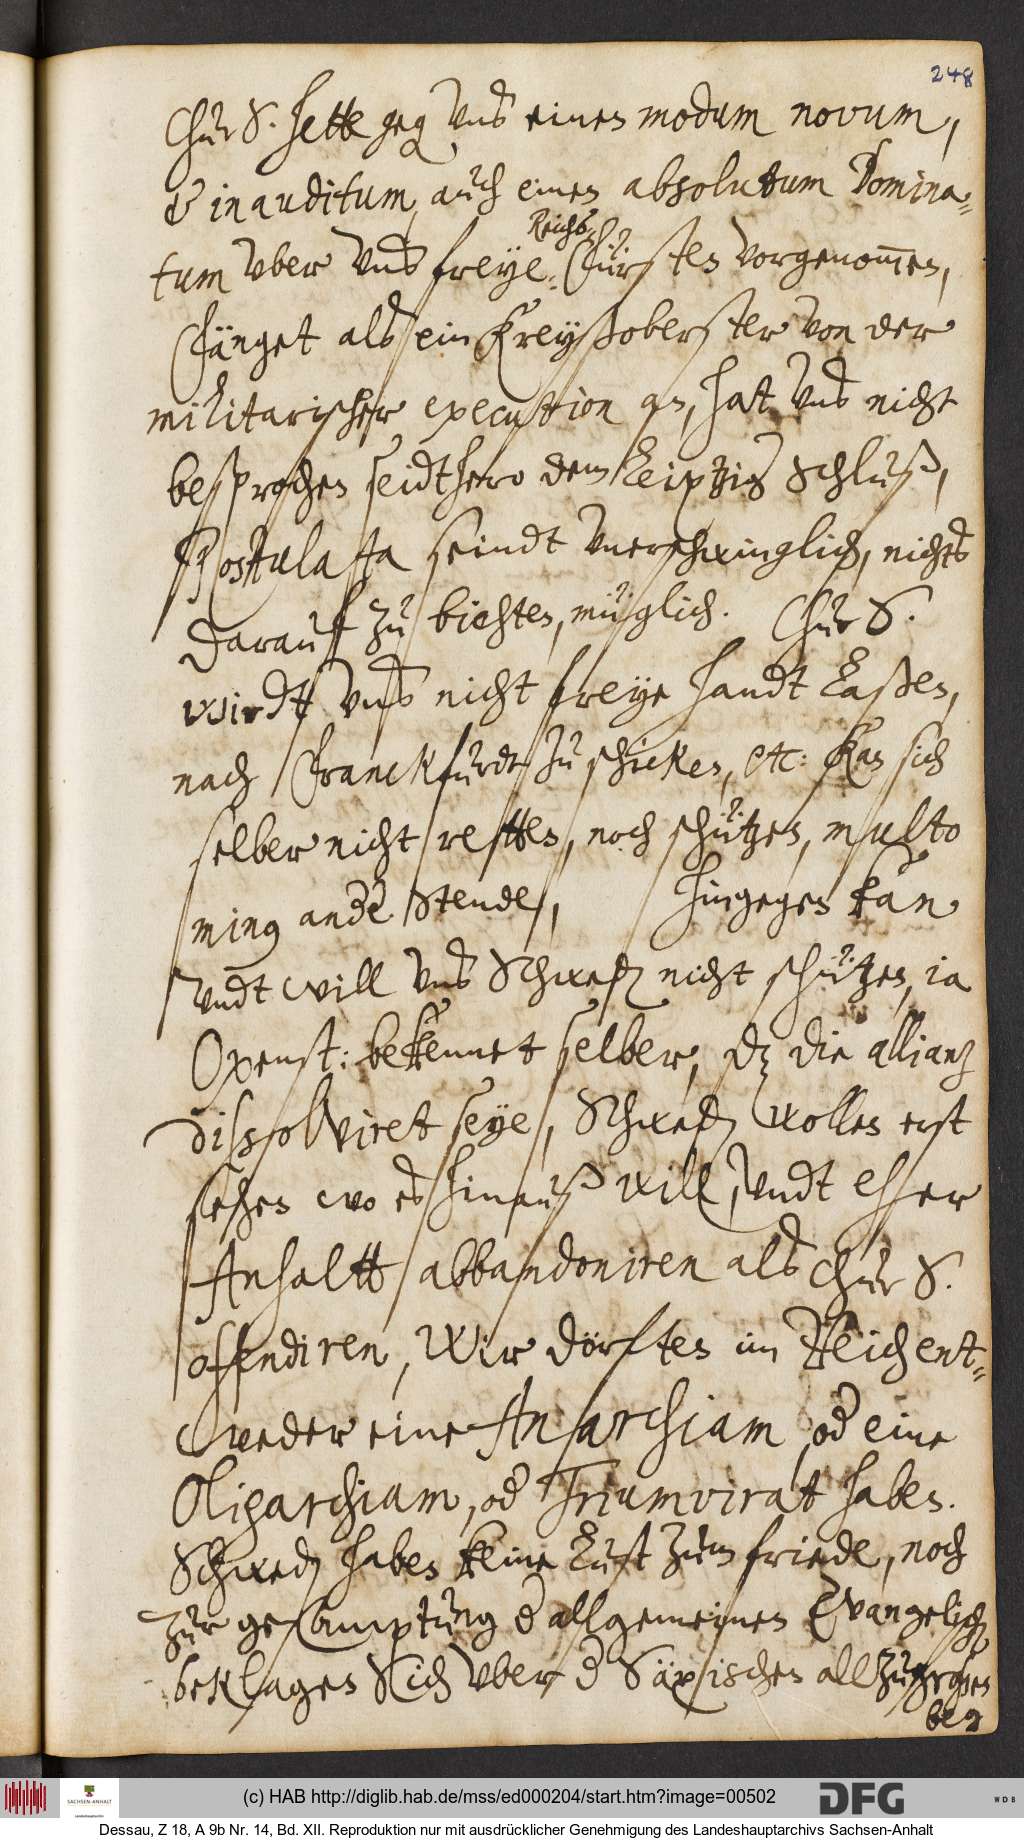 248
Chur S. hette geg uns einen modum novum,
& inauditum, auch einen absolutum Domina=
Reichs=
tum vber vns freye= Fürsten vorgenom̅en,
Fänget als ein Kreyßoberster von der
militarischer execution an, hat vns nicht
besprochen seidthero dem Leiptzig Schluß,
Postulata seindt vnerschwinglich, nichts
darauf zu müglich. Chur S.
wirdt vns nicht freye handt Laßen,
nach Franckfurdt zu schicken, etc: Kan sich
selber nicht retten, noch schützen, multo
ming andre Stende, hingegen kan
vndt will vns Schwed nicht schützen, ia
Oxenst: bekennet selber, dz die allianz
dissolviret seye, Schwed wollen erst
sehen wo es hinauß will, vndt eher
Anhaltt abbandoniren als Chur S.
offendiren, Wir dörften im Reich ent=
weder eine Anarchiam, od eine
Oligarchiam, od Triumvirat haben.
Schwed haben keine Lust zum friede, noch
zur d allgemeinen Evangelisch
beklagen Sich vber d Säxischen allzugroßen
(c) HAB http://diglib.hab.de/mss/ed000204/start.htm?image=00502
DFG
WDB
SACHSEN-ANHALT
Landeshauptarchiv
Dessau, Z 18, A 9b Nr. 14, Bd. XII. Reproduktion nur mit ausdrücklicher Genehmigung des Landeshauptarchivs Sachsen-Anhalt